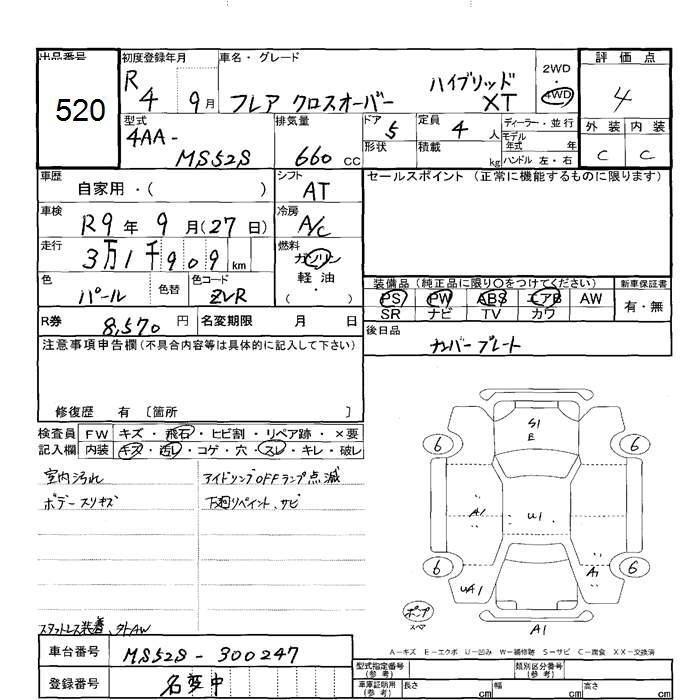 出品番号 520
初度登録年月 R 4 9月
車名・グレード フレア クロスオーバー ハイブリッド XT
2WD・4WD
評価点 4
外装 内装
C C
型式 4AA-MS52S
排気量 660 CC
ドア 5
形状
定員 4人
積載 kg
ディーラー・並行
モデル年式 年
ハンドル 左・右
車歴 自家用・( )
シフト AT
セールスポイント (正常に機能するものに限ります)
車検 R9年 9月(27日)
冷房 A/C
走行 3万1千909km
燃料 ガソリン 軽油・( )
色 パール 色替
色コード ZVR
R券 8,570 円
名変期限 月 日
装備品 (純正品に限り〇をつけてください)
新車保証書
PS PW ABS エアB AW
SR ナビ TV カワ
有・無
後日品 ナンバープレート
注意事項申告欄 (不具合内容等は具体的に記入して下さい)
修復歴 有 〔箇所 〕
検査員記入欄
FW キズ・飛石・ヒビ割・リペア跡・×要
内装 キズ・汚レ・コゲ・穴・スレ・キレ・破レ
室内汚れ
アイドリングOFFランプ点滅
ボデースリキズ
下廻リペイント、サビ
スタットレス装着、外AW
S1
E
6 6
A1 U1
6 6
UA1 A1
A1
ポンプ
スペア
A-キズ E-エクボ U-凹み W-補修跡 S-サビ C-腐食 XX-交換済
車台番号 MS52S-300247
登録番号 名変中
型式指定番号(参考)
類別区分番号(参考)
車庫証明用(参考) 長さ cm 幅 cm 高さ cm